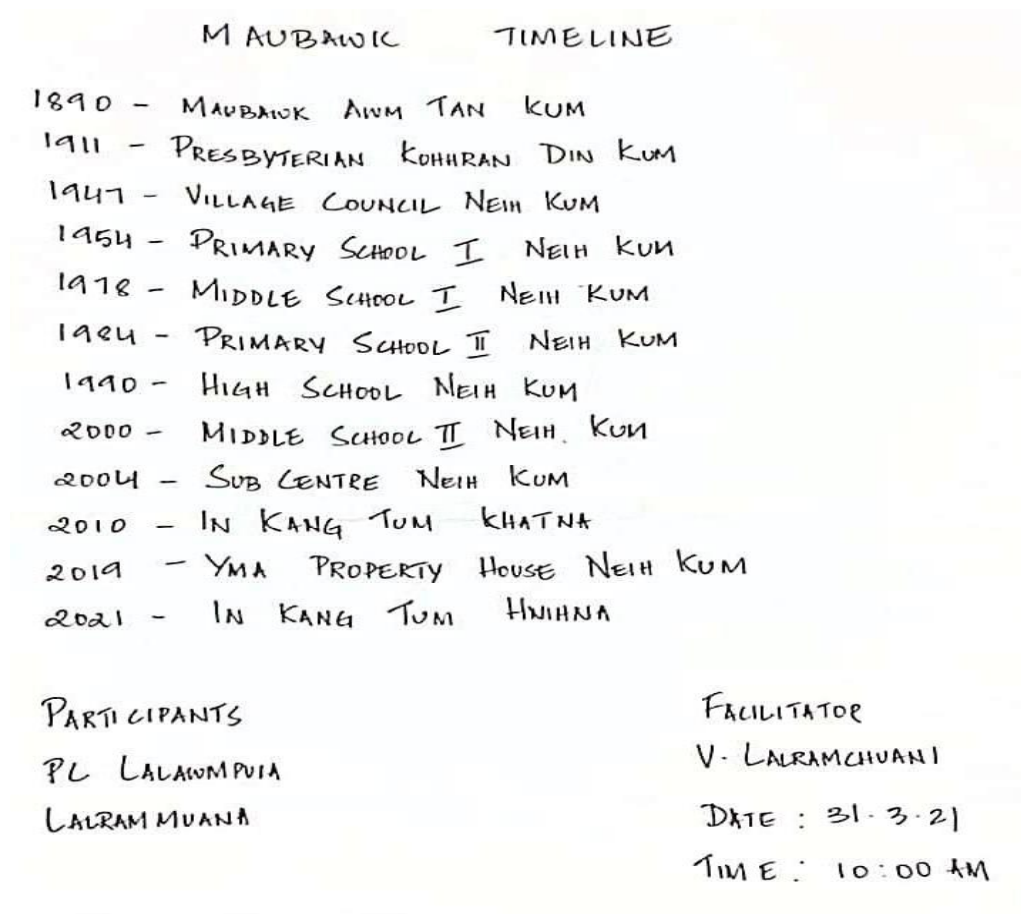 MAUBAWK TIMELINE
1890 - MAUBAWK AWM TAN KUM
1911 - PRESBYTERIAN KOHHRAN DIN KUM
1947 - VILLAGE COUNCIL NEIH KUM
1954 - PRIMARY SCHOOL I NEIH KUM
1978 - MIDDLE SCHOOL I NEIH KUM
1984 - PRIMARY SCHOOL II NEIH KUM
1990 - HIGH SCHOOL NEIH KUM
2000 - MIDDLE SCHOOL II NEIH KUM
2004 - SUB CENTRE NEIH KUM
2010 - IN KANG TUM KHATNA
2019 - YMA PROPERTY HOUSE NEIH KUM
2021 - IN KANG TUM HNIHNA
PARTICIPANTS
PC LALAWMPUIA
LALRAMMUANA
FACILITATOR
V. LALRAMCHUANI
DATE : 31.3.21
TIME : 10:00 AM